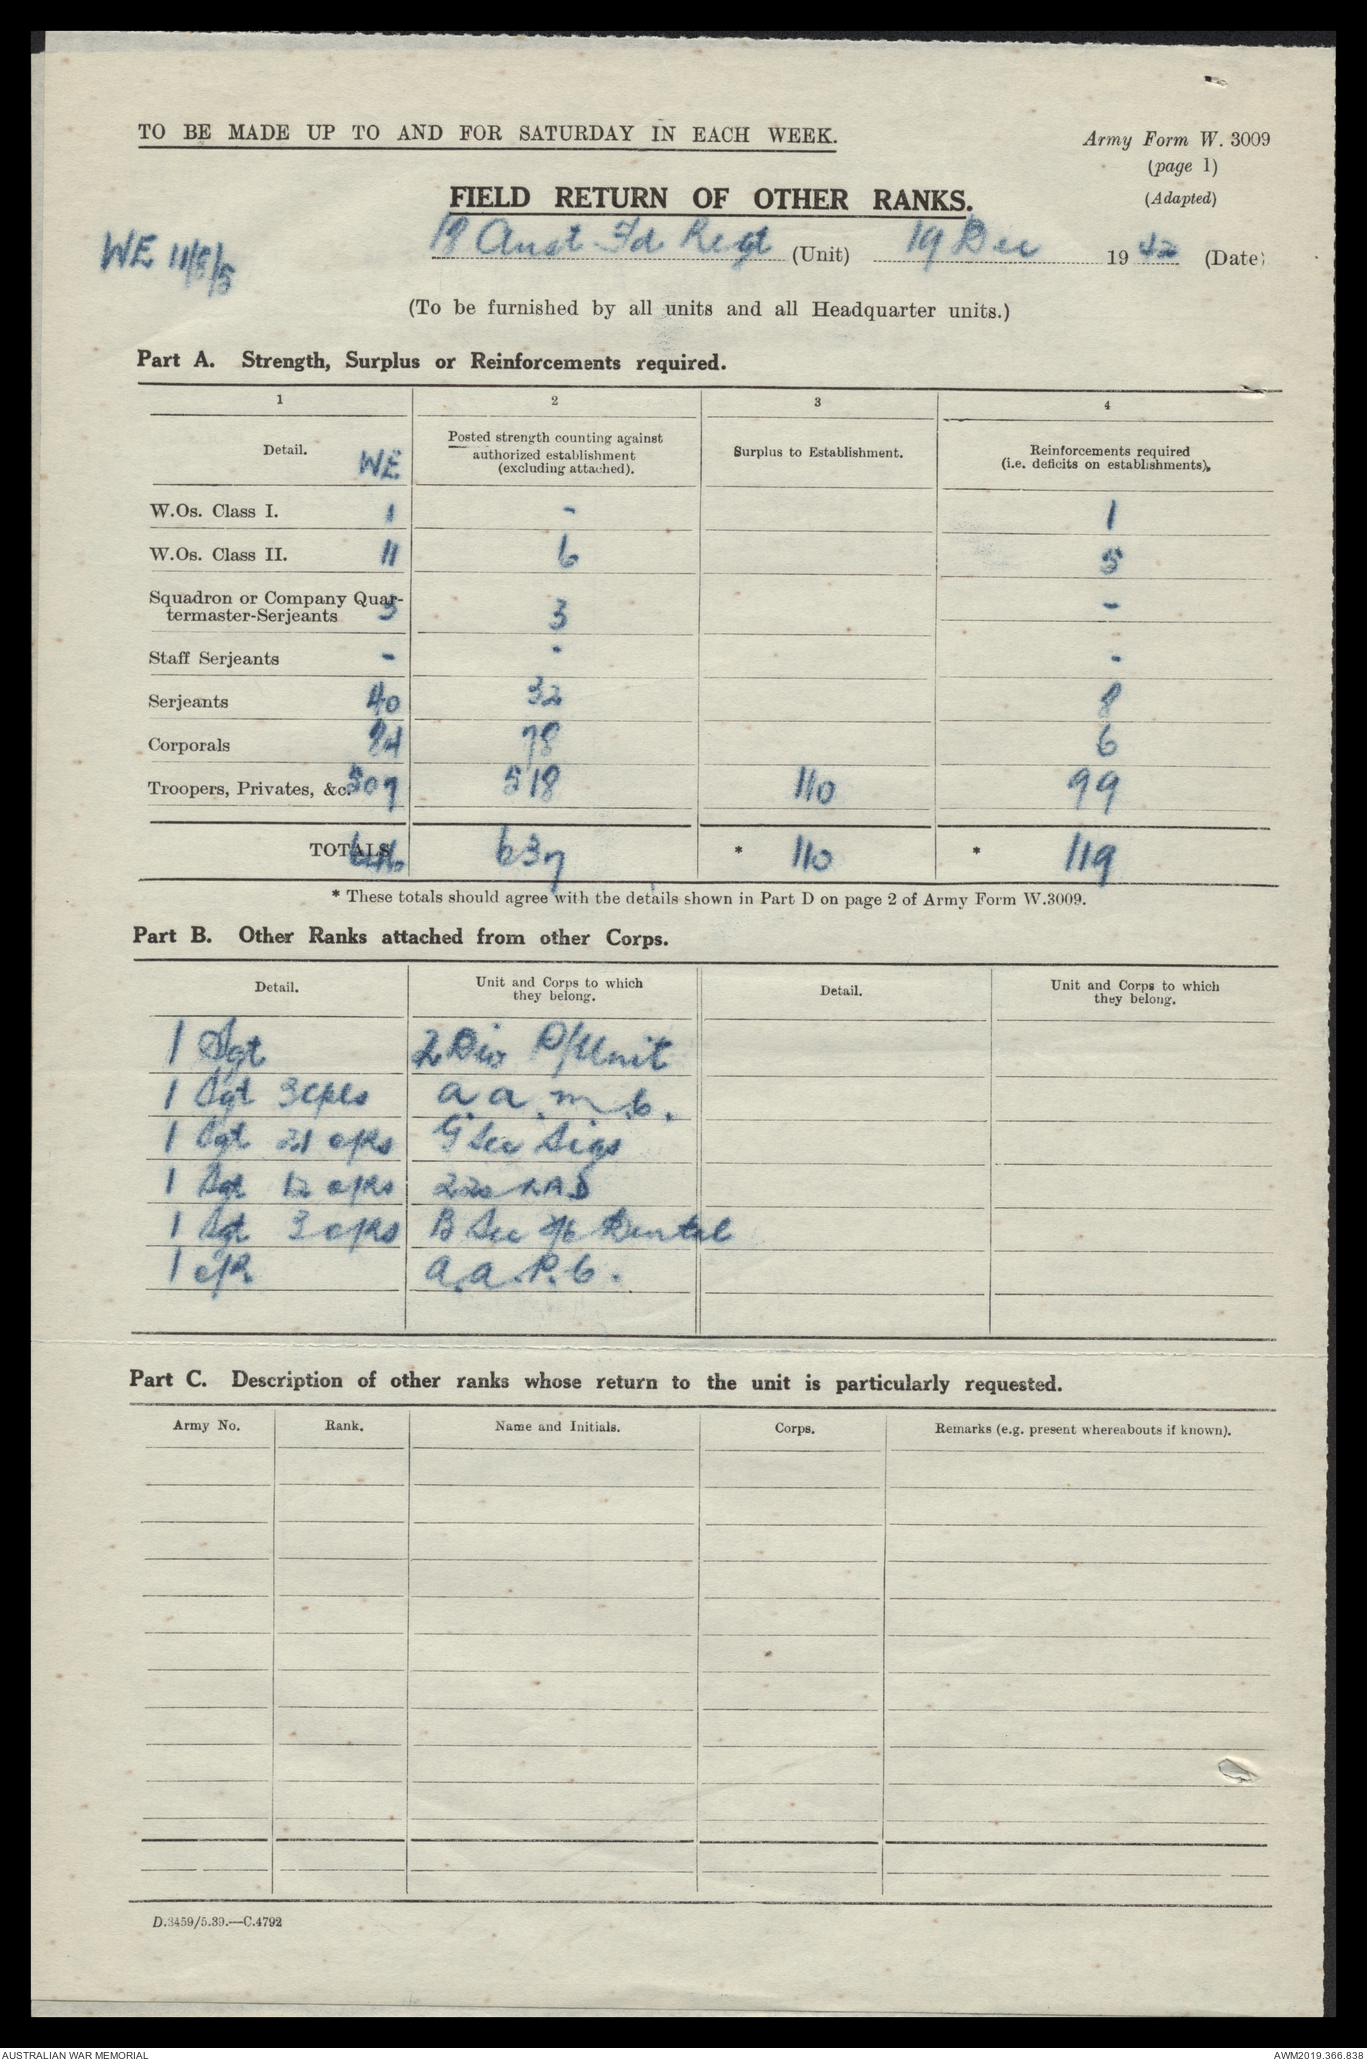 TO BE MADE UP TO AND FOR SATURDAY IN EACH WEEK.
Army Form W. 3009
(page 1)
(Adapted)
FIELD RETURN OF OTHER RANKS.
WE 11/8/5
19 Aust Fd Regt (Unit) 19 Dec 1942 (Date)
(To be furnished by all units and all Headquarter units.)
Part A. Strength, Surplus or Reinforcements required.
1 2 3 4
Detail. WE Posted strength counting against authorized establishment (excluding attached). Surplus to Establishment. Reinforcements required (i.e. deficits on establishments).
W.Os. Class I. 1 - 1
W.Os. Class II. 11 6 5
Squadron or Company Quar-
termaster-Serjeants 3 3 -
Staff Serjeants - - -
Serjeants 40 32 8
Corporals 84 78 6
Troopers, Privates, &c. 507 518 110 99
TOTALS 646 637 * 110 * 119
* These totals should agree with the details shown in Part D on page 2 of Army Form W.3009.
Part B. Other Ranks attached from other Corps.
Detail. Unit and Corps to which they belong. Detail. Unit and Corps to which they belong.
1 Sgt 2 Div P/Unit
1 Sgt 3 Cpls a a. m. c.
1 Sgt 21 o/Rs G Sec Sigs
1 Sgt 12 o/Rs 220 LAD
1 Sgt 3 o/Rs B Sec Dental
1 o/R. a.a.P.C.
Part C. Description of other ranks whose return to the unit is particularly requested.
Army No. Rank. Name and Initials. Corps. Remarks (e.g. present whereabouts if known).
D.3459/5.39.—C.4792
AUSTRALIAN WAR MEMORIAL
AWM2019.366.838